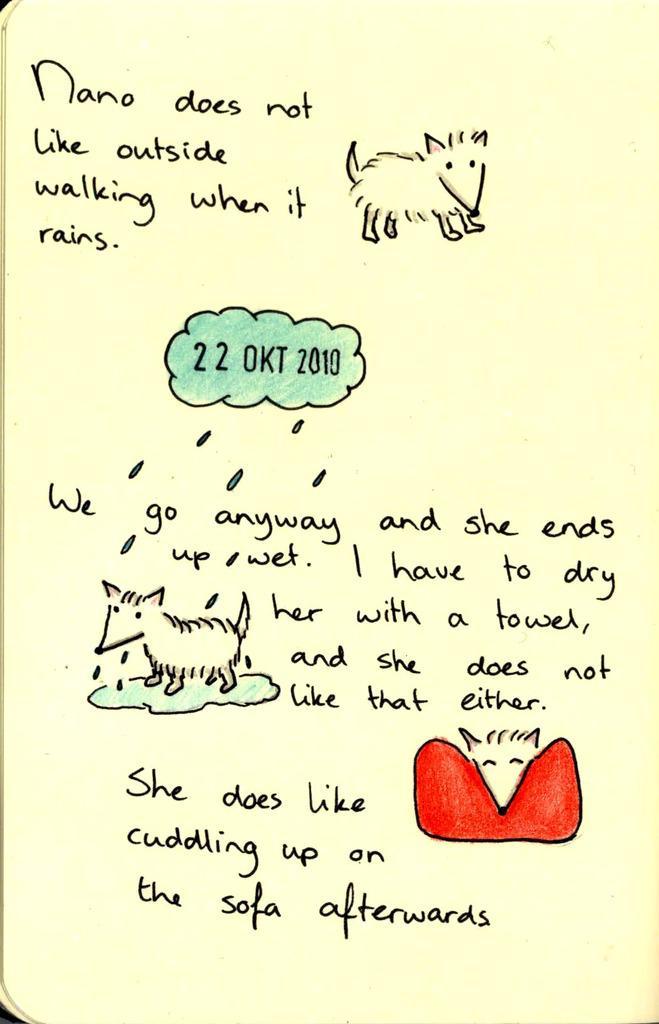 Nano does not
like outside
walking when it
rains.
22 OKT 2010
We go anyway and she ends
up wet. I have to dry
her with a towel,
and she does not
like that either.
She does like
cuddling up on
the sofa afterwards